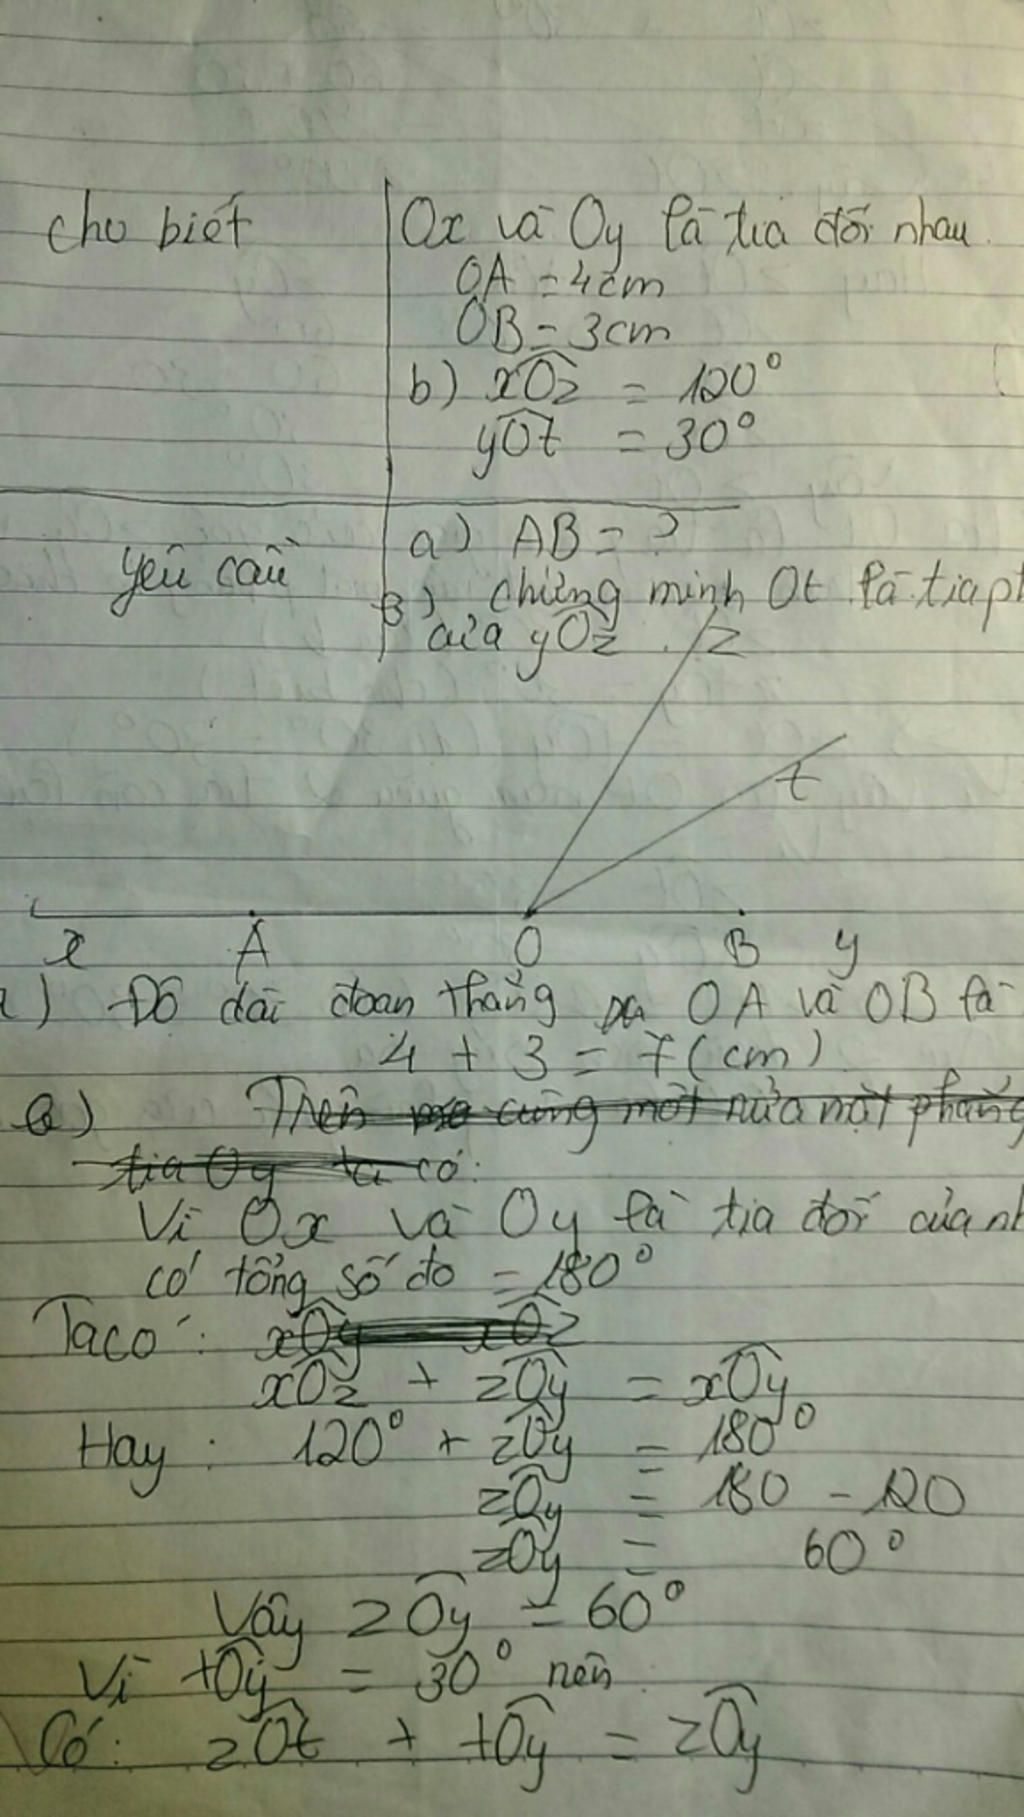 cho biết
Ox và Oy là tia đối nhau.
OA = 4cm
OB = 3cm
b) xOz = 120°
yOt = 30°
yêu cầu
a) AB = ?
B) chứng minh Ot là tia
của yOz.
z
t
x A O B y
) Độ dài đoan thẳng OA và OB là
4 + 3 = 7 (cm)
B) Trên cùng một nửa mặt phẳng
tia Oy ta có:
Vì Ox và Oy là tia đối của
có tổng số đo = 180°
Ta có: xOy xOz
xOz + zOy = xOy
Hay: 120° + zOy = 180°
zOy = 180 - 120
zOy = 60°
Vây zOy = 60°
Vì tOy = 30° nên
Có: zOt + tOy = zOy